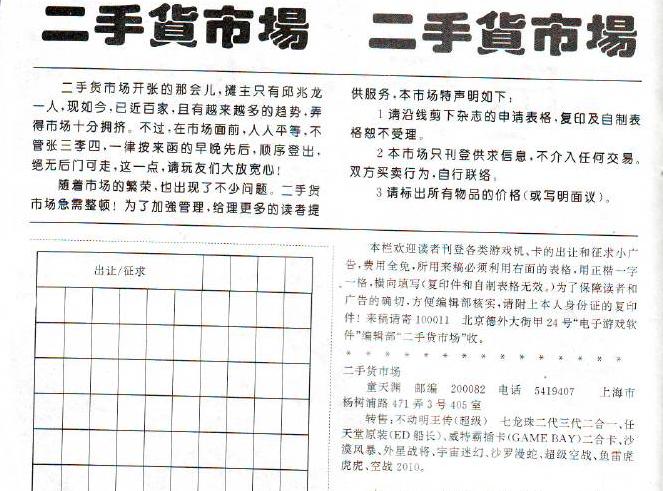 二手貨市場
二手貨市場
二手货市场开张的那会儿，摊主只有邱兆龙
一人，现如今，已近百家，且有越来越多的趋势，弄
得市场十分拥挤。不过，在市场面前，人人平等，不
管张三李四，一律按来函的早晚先后，顺序登出，
绝无后门可走，这一点，请玩友们大放宽心！
随着市场的繁荣，也出现了不少问题。二手货
市场急需整顿！为了加強管理，给理更多的读者提
供服务，本市场特声明如下：
1 请沿线剪下杂志的申请表格，复印及自制表
格恕不受理。
2 本市场只刊登供求信息，不介入任何交易。
双方买卖行为，自行联络。
3 请标出所有物品的价格（或写明面议）。
出让/征求
本栏欢迎读者刊登各类游戏机、卡的出让和征求小广
告，费用全免，所用来稿必须利用右面的表格，用正楷一字
一格，横向填写（复印件和自制表格无效。）为了保障读者和
广告的确切，方便编辑部核实，请附上本人身份证的复印
件！来稿请寄 100011 北京德外大街甲 24 号“电子游戏软
件”编辑部“二手货市场”收。
* * * * * * * * * * * * * * *
二手货市场
童天渊 邮编 200082 电话 5419407 上海市
杨树浦路 471 弄 3 号 405 室
转售：不动明王传（超级） 七龙珠二代三代二合一、任
天堂原装（ED 船长）、威特霸插卡（GAME BAY）二合卡、沙
漠风暴、外星战将、宇宙迷幻、沙罗漫蛇、超级空战、鱼雷虎
虎虎、空战 2010。